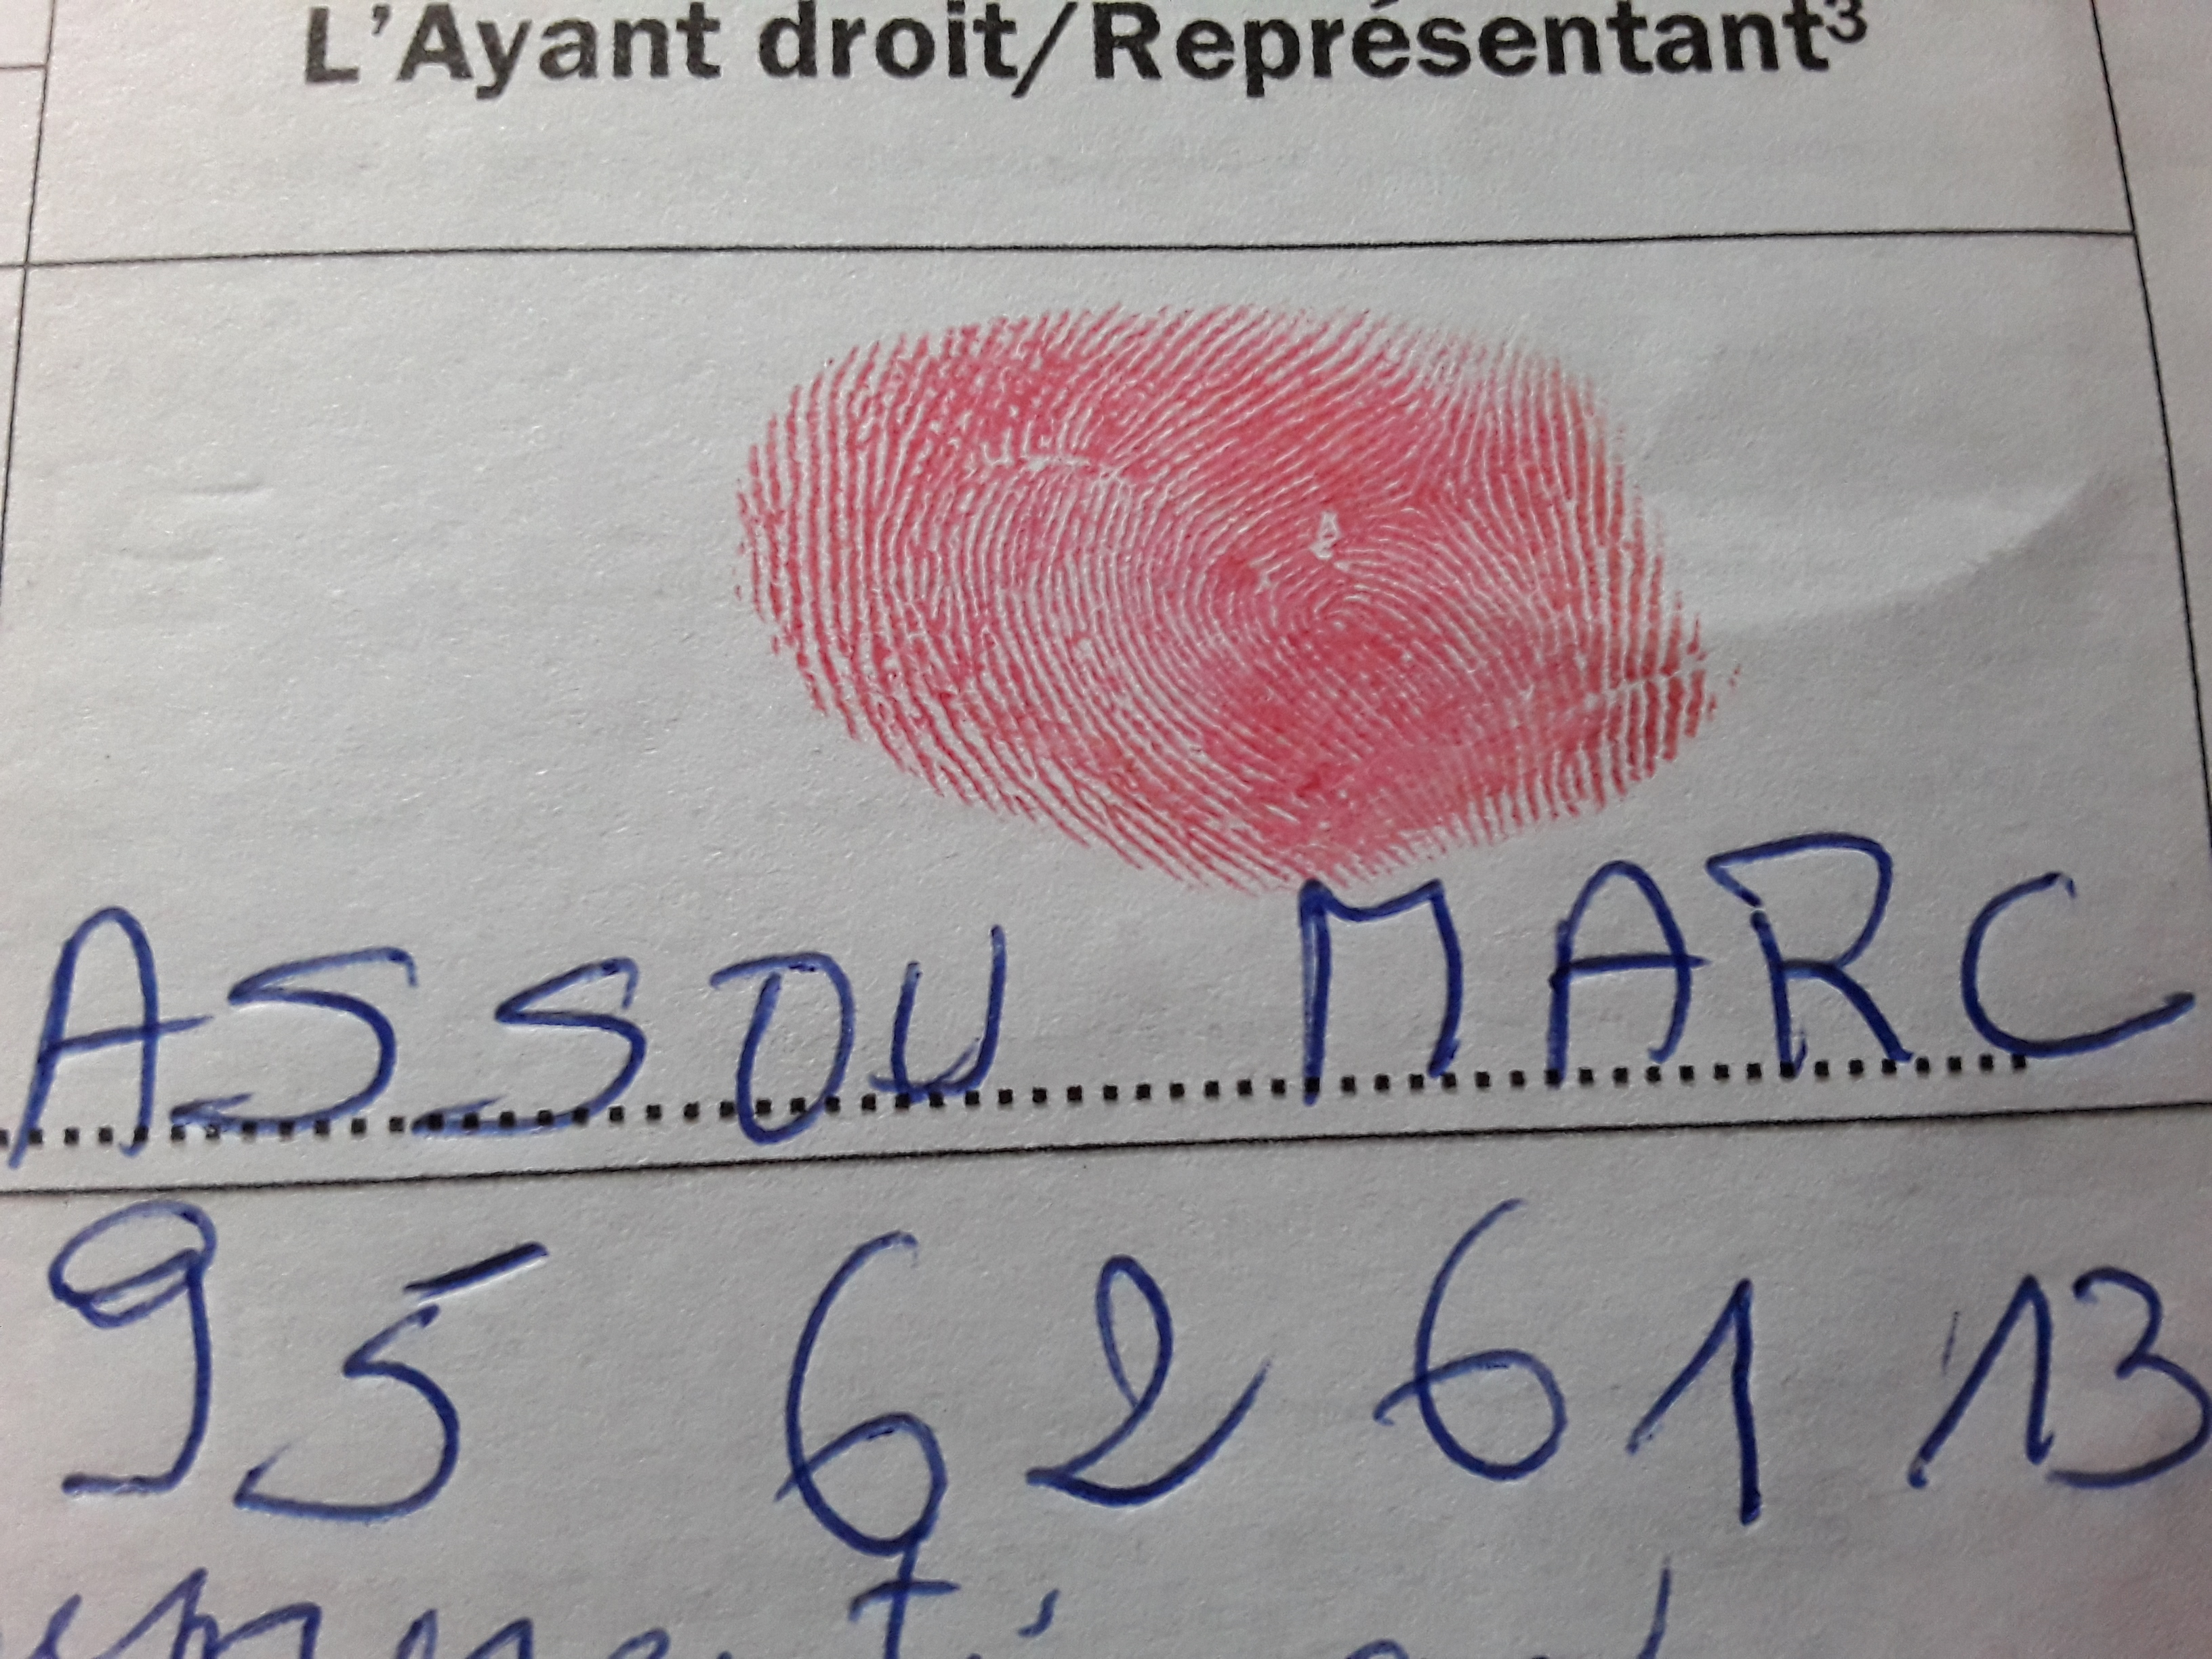 L'Ayant droit/Représentant³
ASSOU MARC
95 62 61 13